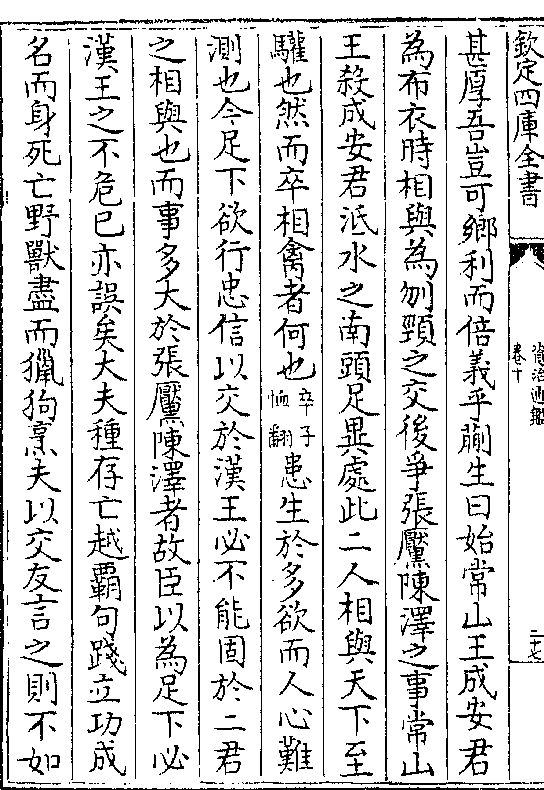 欽定四庫全書
資治通鑑
卷十
二十七
甚厚吾豈可鄉利而倍義乎蒯生曰始常山王成安君
為布衣時相與為刎頸之交後爭張黶陳澤之事常山
王殺成安君泜水之南頭足異處此二人相與天下至
驩也然而卒相禽者何也卒子恤翻患生於多欲而人心難
測也今足下欲行忠信以交於漢王必不能固於二君
之相與也而事多大於張黶陳澤者故臣以為足下必
漢王之不危已亦誤矣大夫種存亡越霸句踐立功成
名而身死亡野獸盡而獵狗烹夫以交友言之則不如